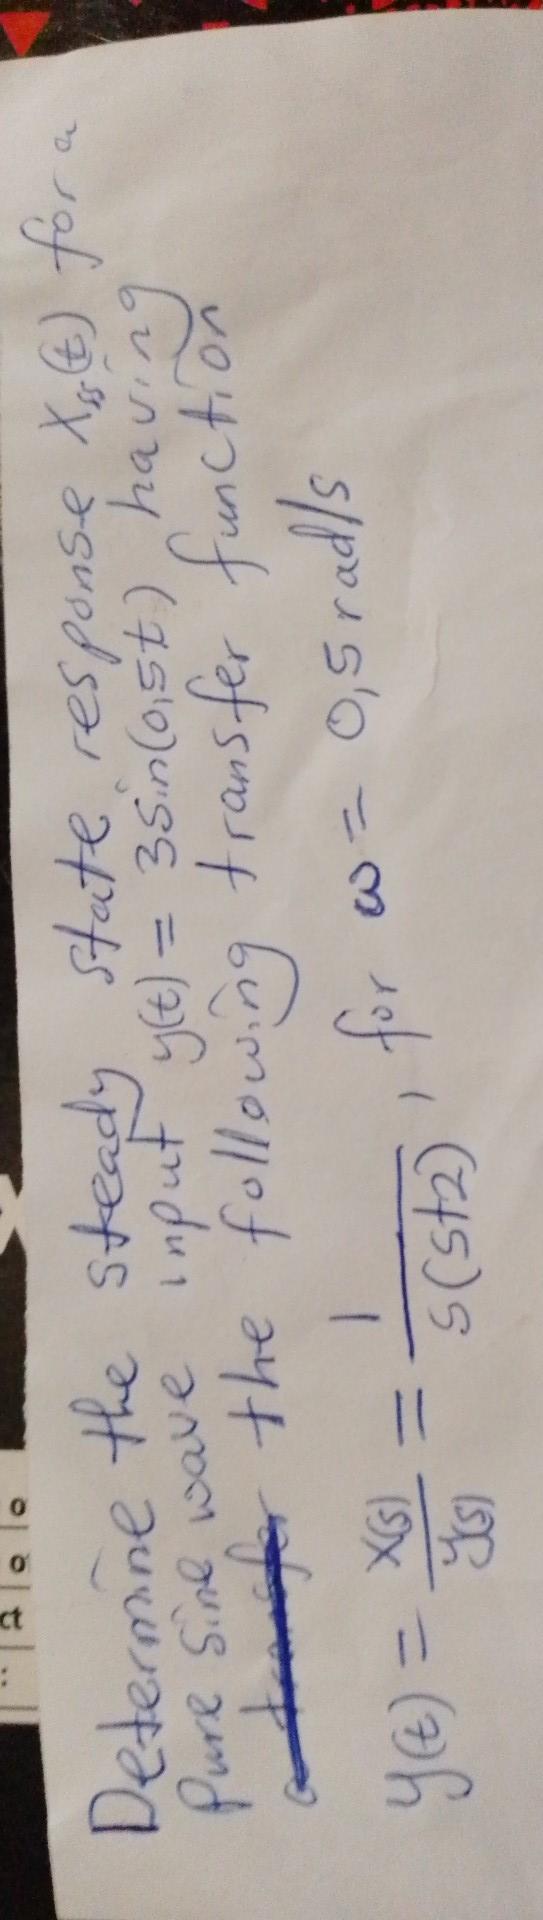 Determine the steady state response Xss(t) for a
pure sine wave input y(t) = 3sin(0,5t) having
the following transfer function
y(t) = X(s)/Y(s) = 1/s(s+2), for ω = 0,5 rad/s